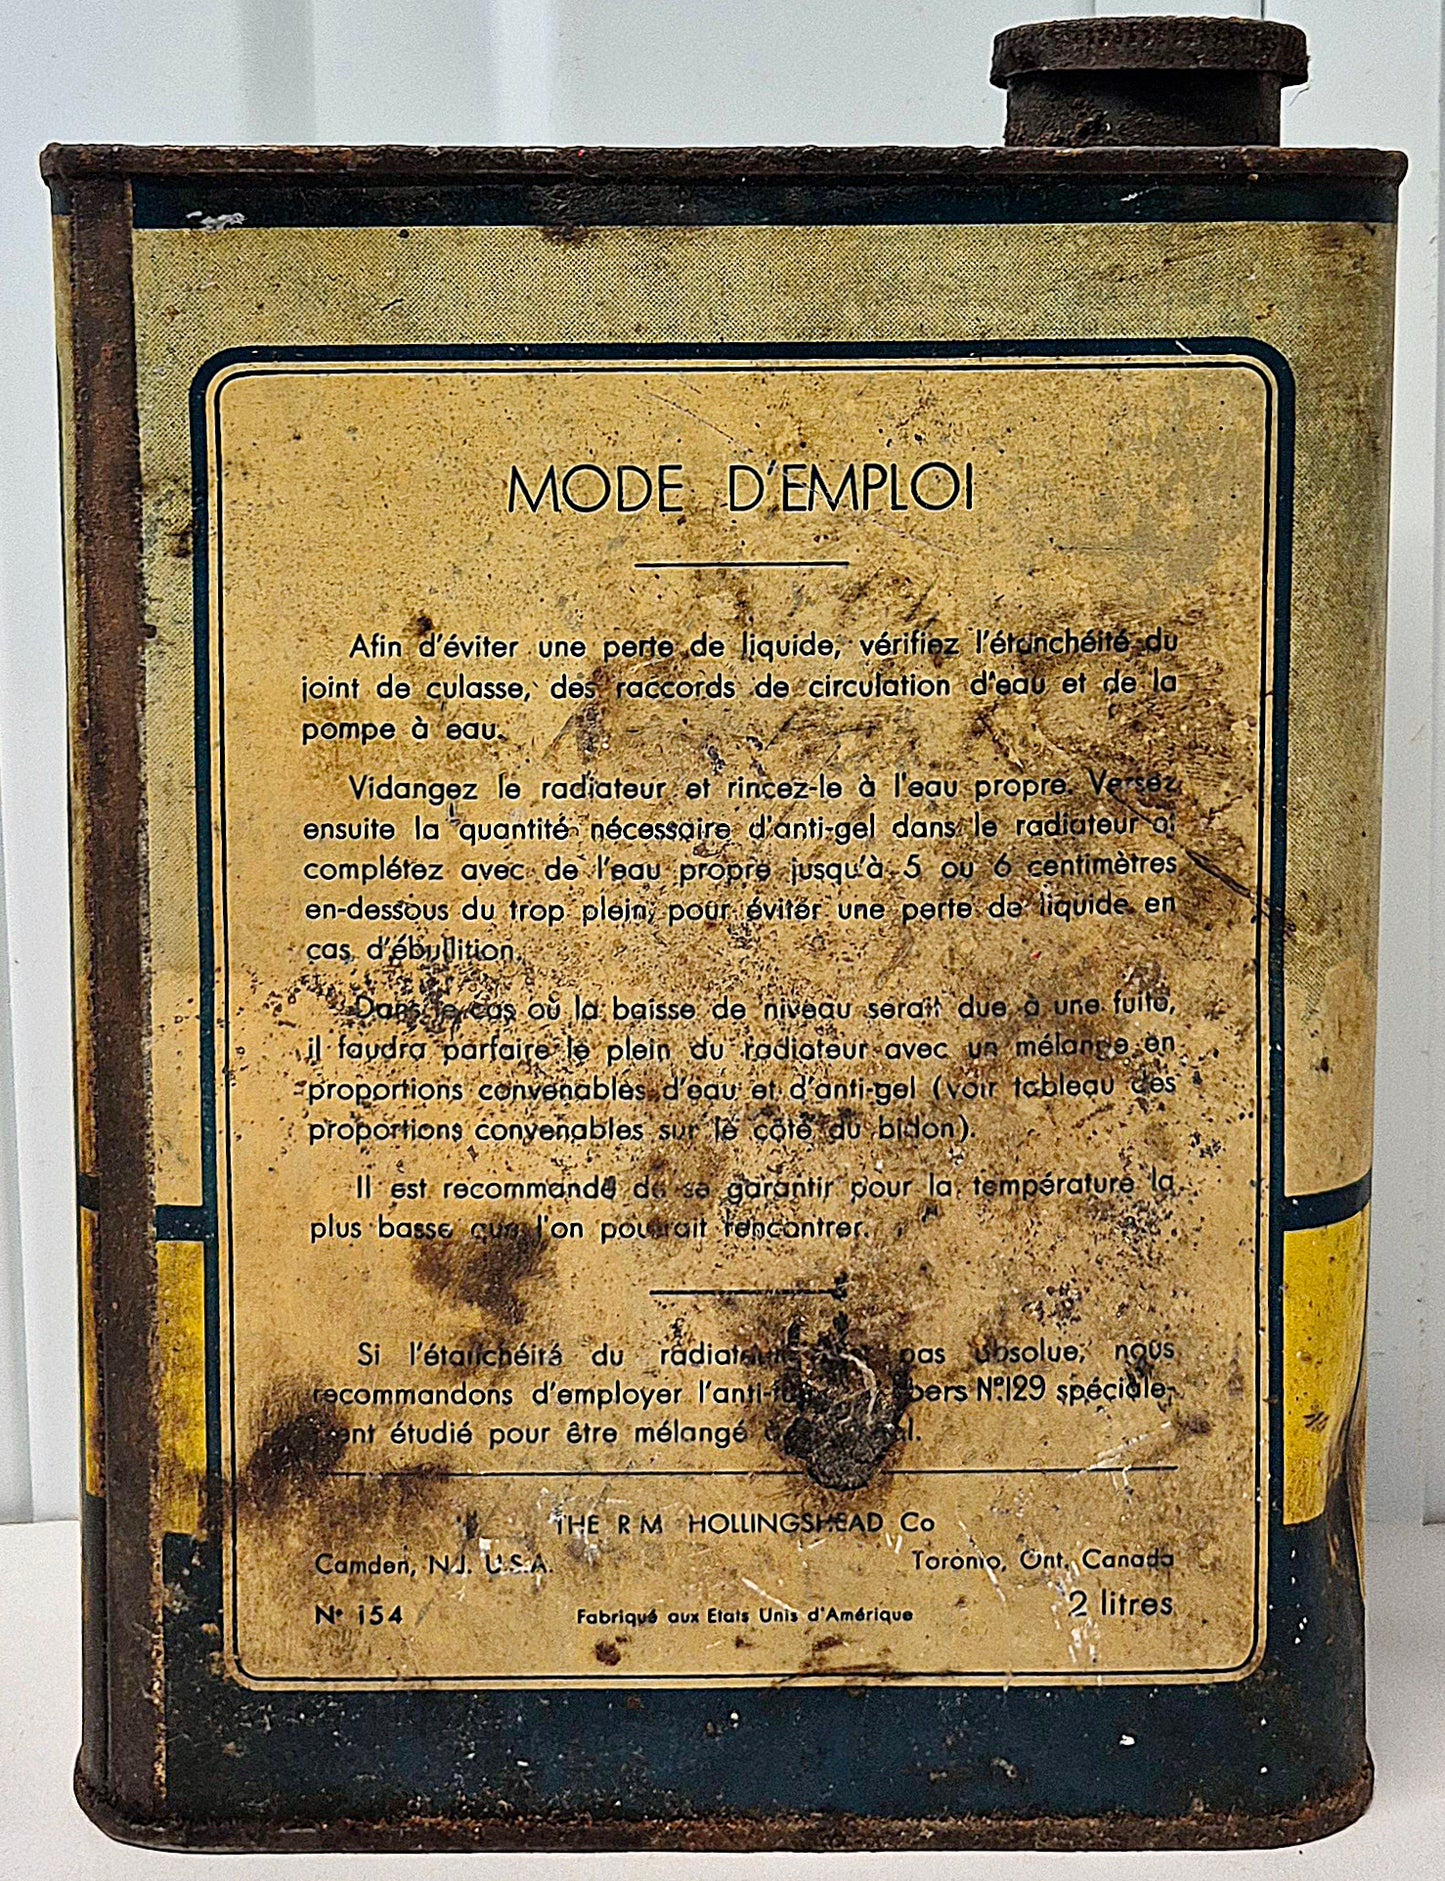 MODE D'EMPLOI
Afin d'éviter une perte de liquide, vérifiez l'étanchéité du
joint de culasse, des raccords de circulation d'eau et de la
pompe à eau.
Vidangez le radiateur et rincez-le à l'eau propre. Versez
ensuite la quantité nécessaire d'anti-gel dans le radiateur et
complétez avec de l'eau propre jusqu'à 5 ou 6 centimètres
en-dessous du trop plein, pour éviter une perte de liquide en
cas d'ébullition.
Dans le cas où la baisse de niveau serait due à une fuite,
il faudra parfaire le plein du radiateur avec un mélange en
proportions convenables d'eau et d'anti-gel (voir tableau des
proportions convenables sur le côté du bidon).
Il est recommandé de se garantir pour la température la
plus basse que l'on pourrait rencontrer.
Si l'étanchéité du radiateur pas absolue, nous
recommandons d'employer N° 129 spéciale-
ment étudié pour être mélangé
THE R M HOLLINGSHEAD Co
Camden, N.J. U.S.A. Toronto, Ont, Canada
N° 154 Fabriqué aux Etats Unis d'Amérique 2 litres